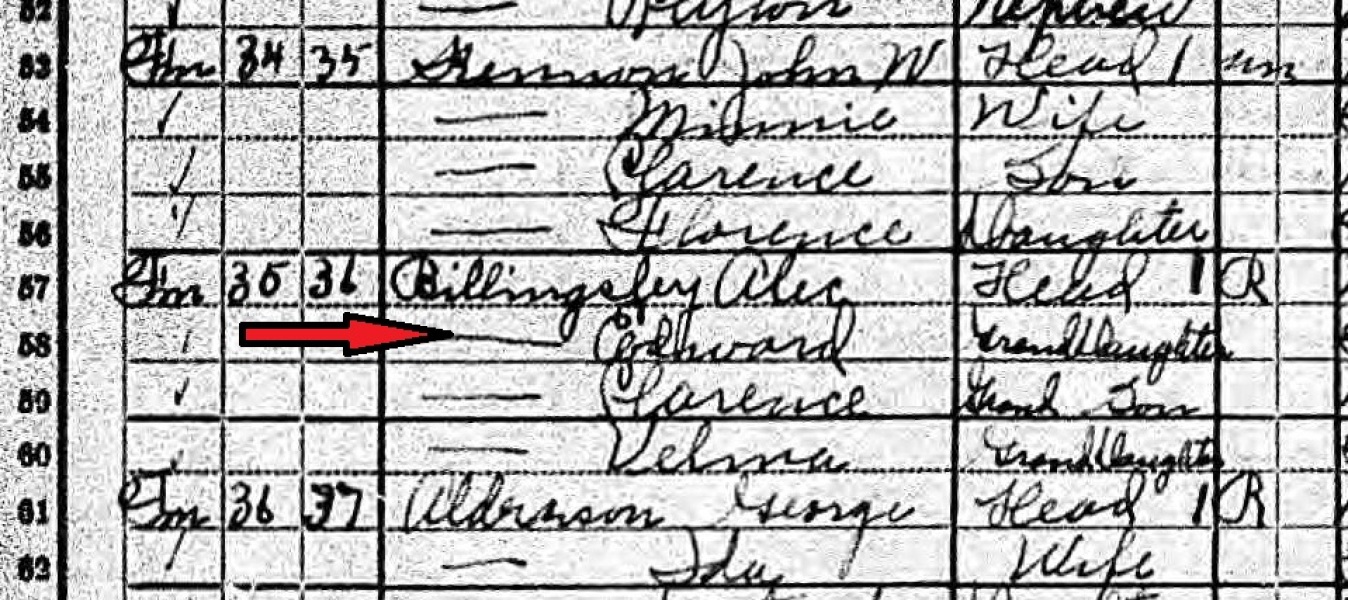 52 — Peyton Nephew
53 Fm 34 35 John W Head 1
54 — Minnie Wife
55 — Clarence Son
56 — Florence Daughter
57 Fm 35 36 Billingsley Alec Head 1 R
58 — Edward GrandDaughter
59 — Clarence Grand Son
60 — Velma GrandDaughter
61 Fm 36 37 Alderson George Head 1 R
62 — Ida Wife